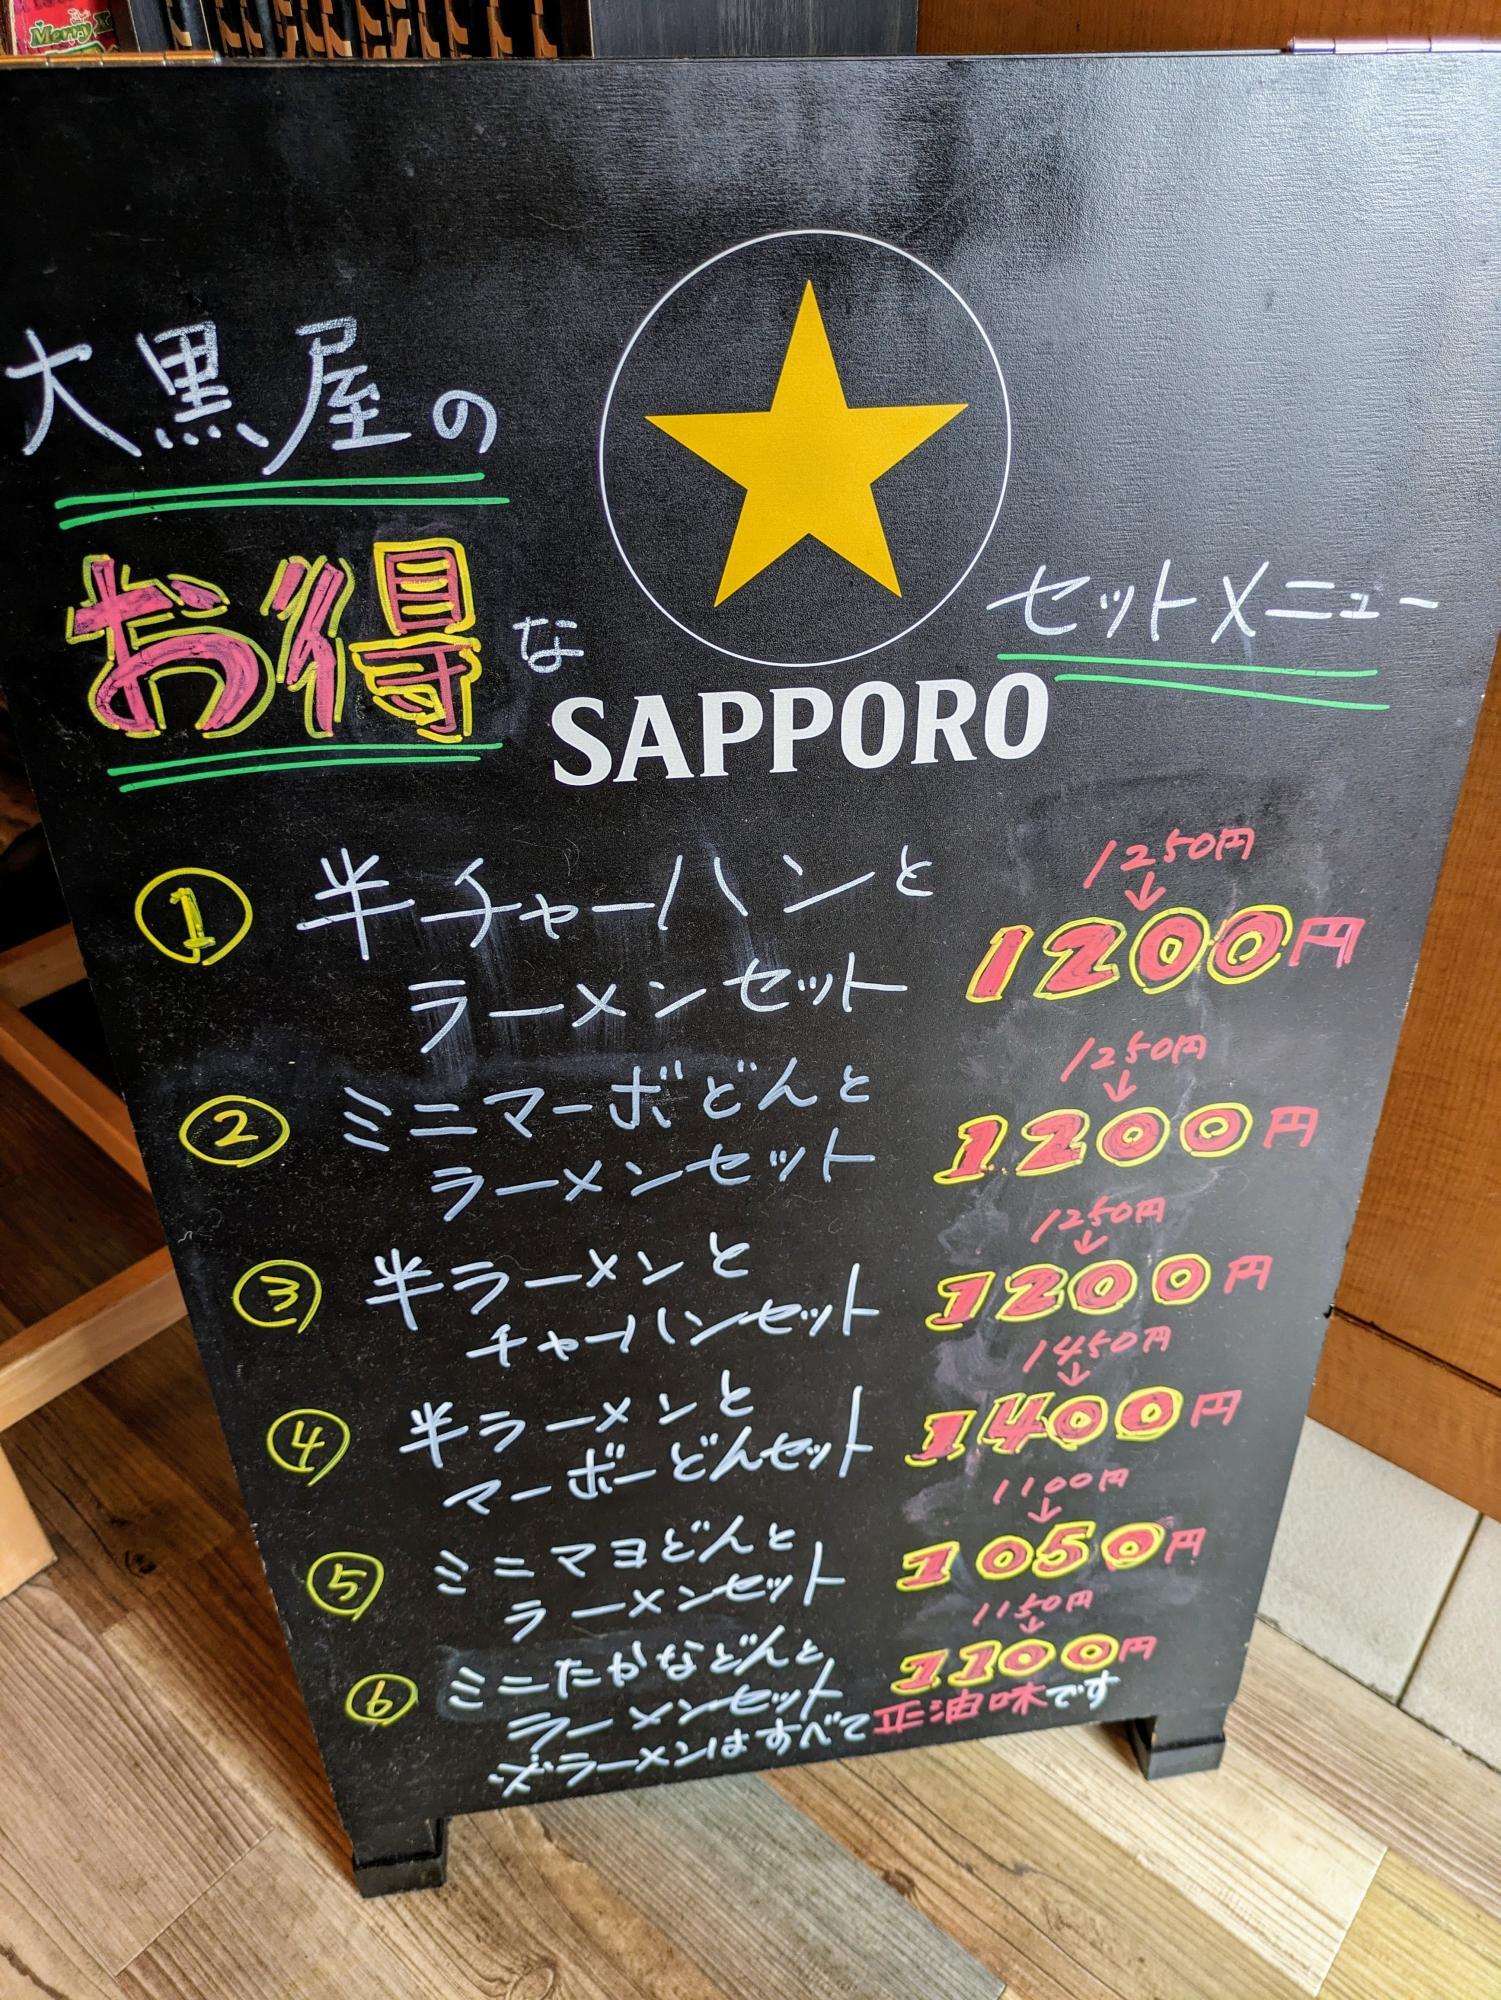 Merry X
大黒屋の
お得な
セットメニュー
SAPPORO
① 半チャーハンと
ラーメンセット
1250円
↓
1200円
② ミニマーボどんと
ラーメンセット
1250円
↓
1200円
③ 半ラーメンと
チャーハンセット
1250円
↓
1200円
④ 半ラーメンと
マーボーどんセット
1450円
↓
1400円
⑤ ミニマヨどんと
ラーメンセット
1100円
↓
1050円
⑥ ミニたかなどんと
ラーメンセット
1150円
↓
1100円
※ラーメンはすべて正油味です